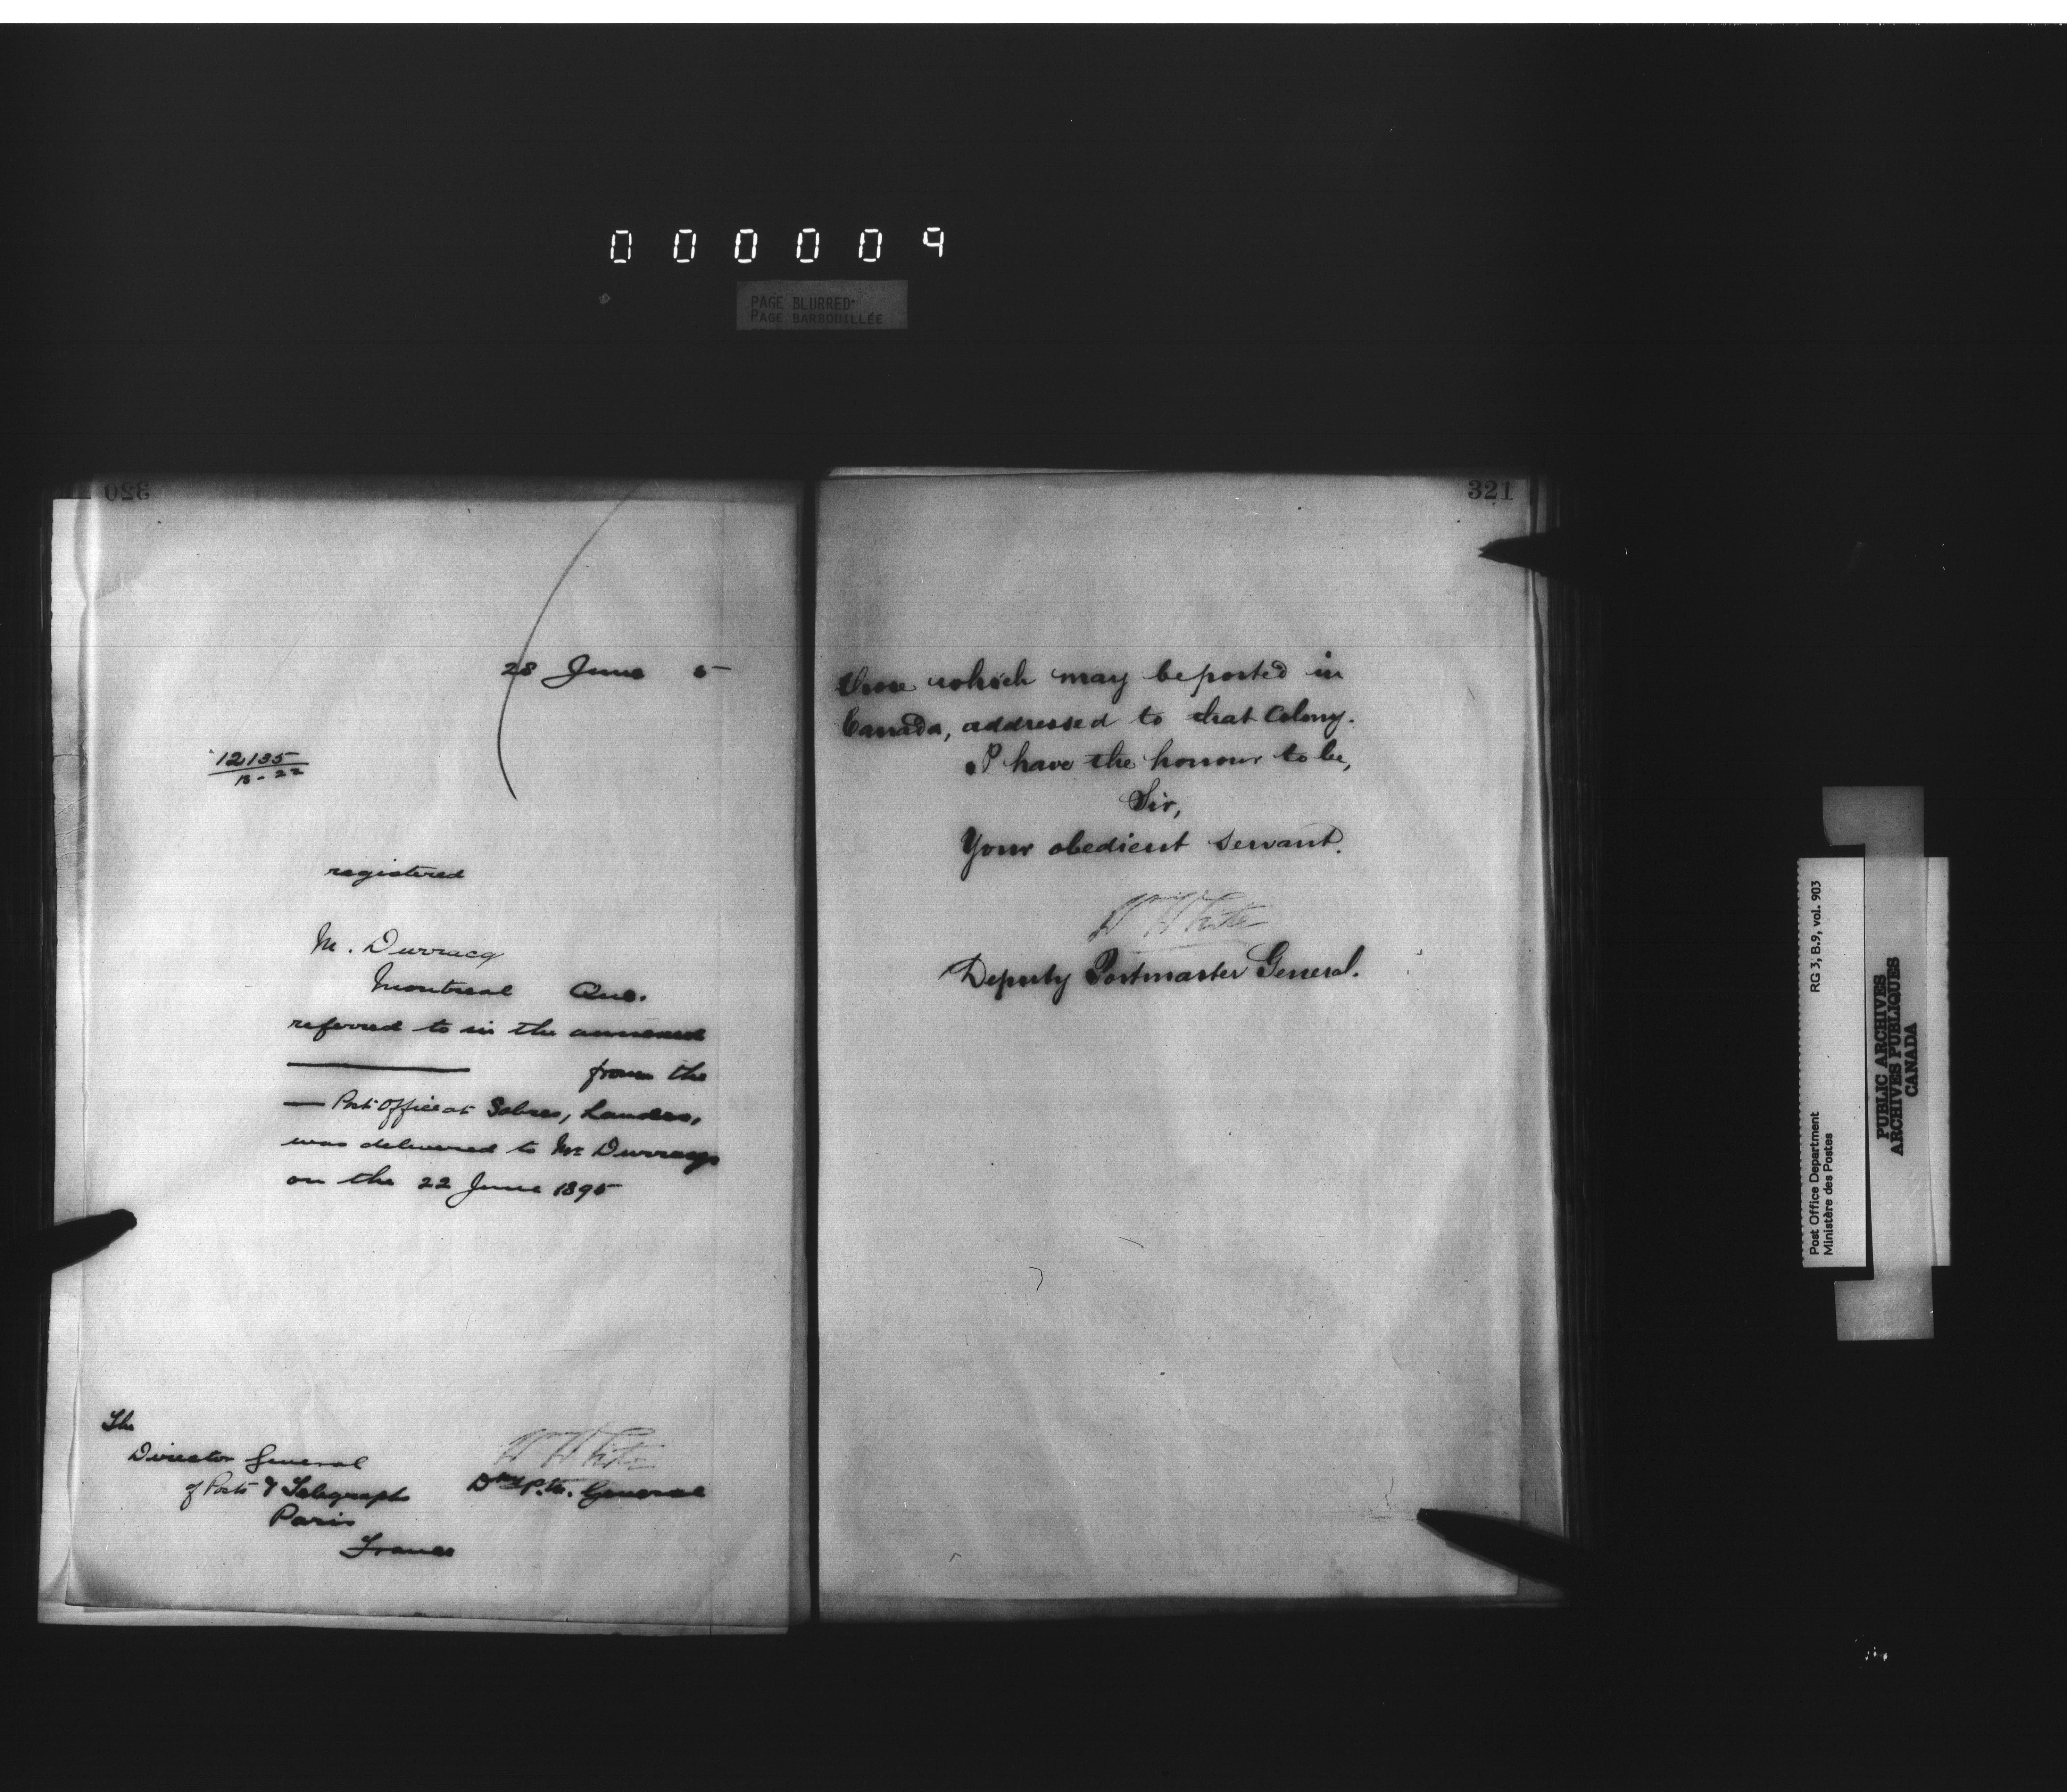 000009
PAGE BLURRED
PAGE BARBOUILLÉE
320
28 June 5
12135
B-22
registered
M. Durracq
Montreal Que.
referred to in the annexed
from the
Post Office at Sabres, Landes,
was delivered to Mr Durracq
on the 22 June 1895
The
Director General
of Posts & Telegraphs
Paris
France
W White
Dty P.M. General
321
those which may be posted in
Canada, addressed to that Colony.
I have the honour to be,
Sir,
Your obedient servant.
W White
Deputy Postmaster General.
Post Office Department RG 3, B.9, vol. 903
Ministère des Postes
PUBLIC ARCHIVES
ARCHIVES PUBLIQUES
CANADA